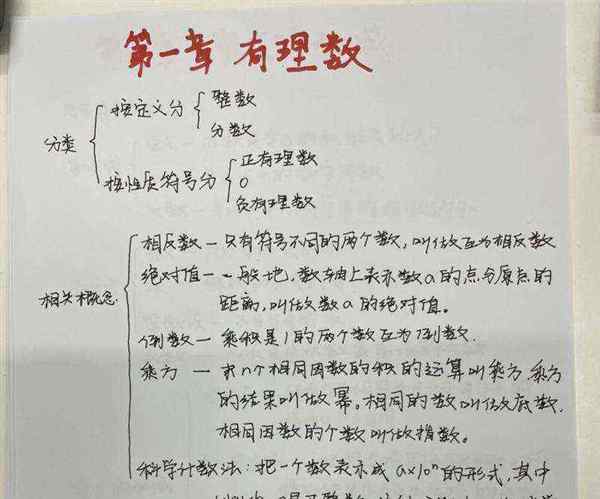 第一章 有理数
分类
按定义分
整数
分数
按性质符号分
正有理数
0
负有理数
相关概念
相反数—只有符号不同的两个数,叫做互为相反数
绝对值—一般地,数轴上表示数a的点与原点的
距离,叫做数a的绝对值。
倒数—乘积是1的两个数互为倒数.
乘方—求n个相同因数的积的运算叫乘方,乘方
的结果叫做幂。相同的数叫做底数,
相同因数的个数叫做指数。
科学计数法:把一个数表示成a×10ⁿ的形式,其中